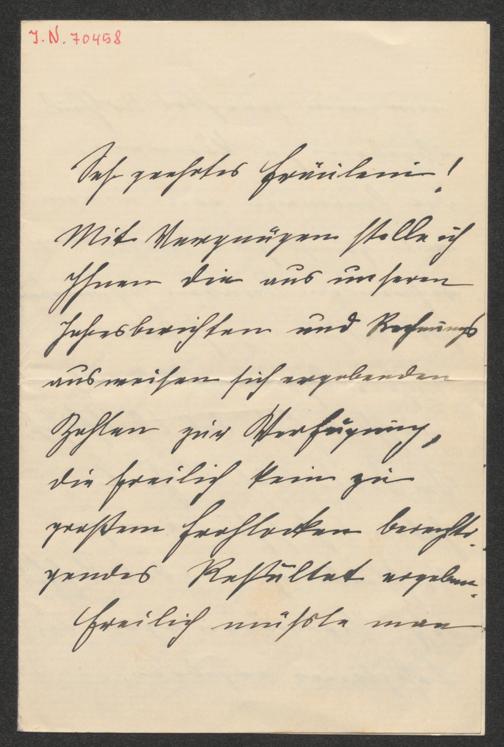 J.N. 70458
Sehr geehrtes Fräulein!
Mit Vergnügen stelle ich
Ihnen die aus unseren
Jahresberichten und Rechnungs
ausweisen sich ergebenden
Zahlen zur Verfügung,
die freilich kein zu
großem Frohlocken berechti-
gendes Resultat ergeben.
Freilich müßte man